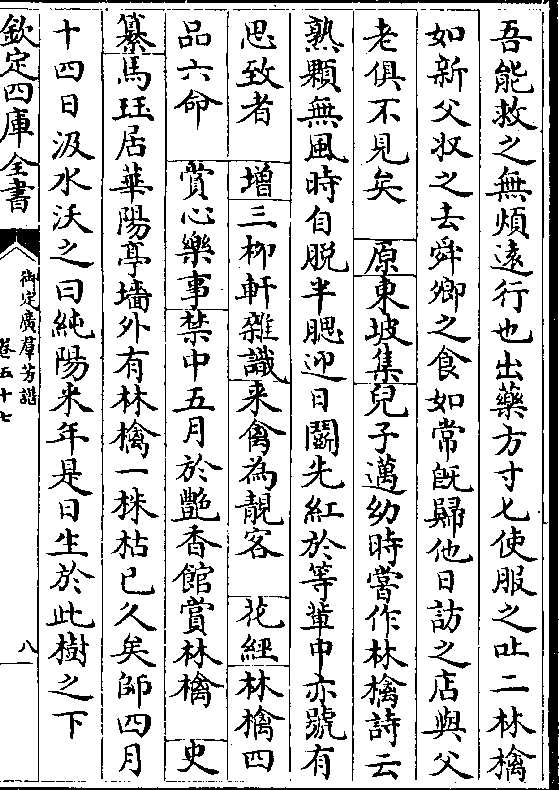 吾能救之無煩遠行也出藥方寸匕使服之吐二林檎
如新父収之去舜卿之食如常旣歸他日訪之店與父
老俱不見矣　原東坡集兒子邁幼時嘗作林檎詩云
熟顆無風時自脱半腮迎日鬭先紅於等輩中亦號有
思致者　增三柳軒雜識來禽為靚客　花經林檎四
品六命　賞心樂事禁中五月於艶香館賞林檎　史
纂馬珏居華陽亭墻外有林檎一株枯已久矣師四月
十四日汲水沃之曰純陽来年是日生於此樹之下
欽定四庫全書
御定廣羣芳譜
卷五十七
八